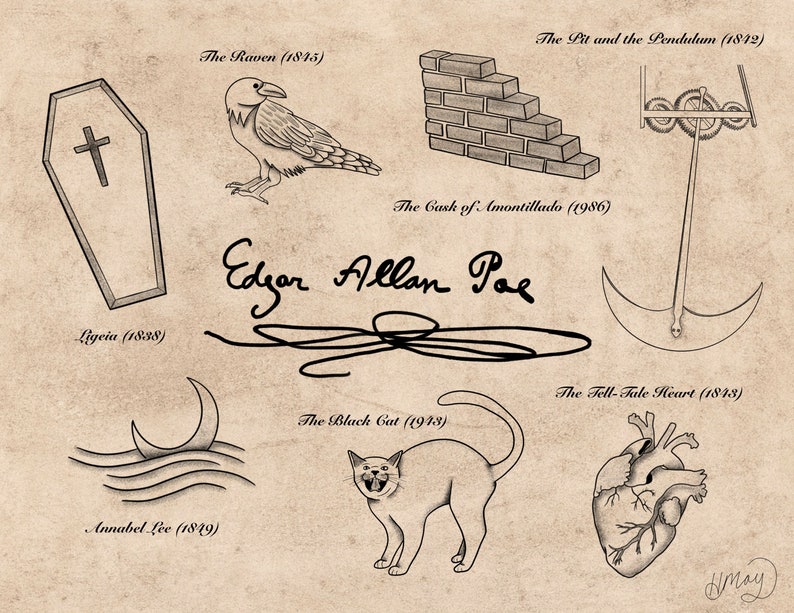 The Raven (1845)
The Pit and the Pendulum (1842)
The Cask of Amontillado (1986)
Edgar Allan Poe
Ligeia (1838)
The Black Cat (1943)
The Tell-Tale Heart (1843)
Annabel Lee (1849)
HMay